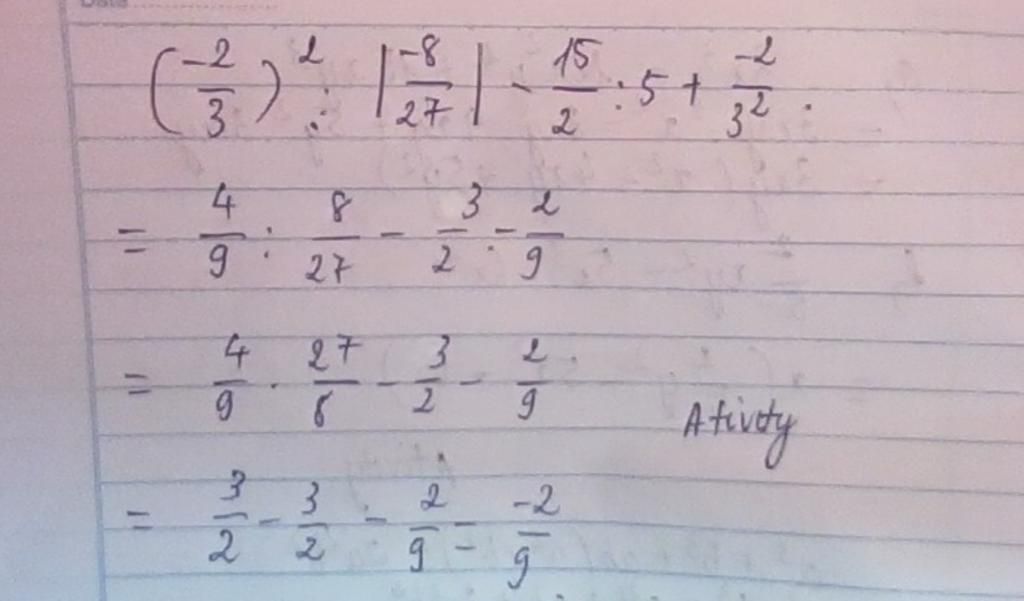 Date
(-2/3)^2 : |-8/27| - 15/2 : 5 + -2/3^2 .
= 4/9 : 8/27 - 3/2 - 2/9
= 4/9 . 27/8 - 3/2 - 2/9 .
Ativity
= 3/2 - 3/2 - 2/9 = -2/9